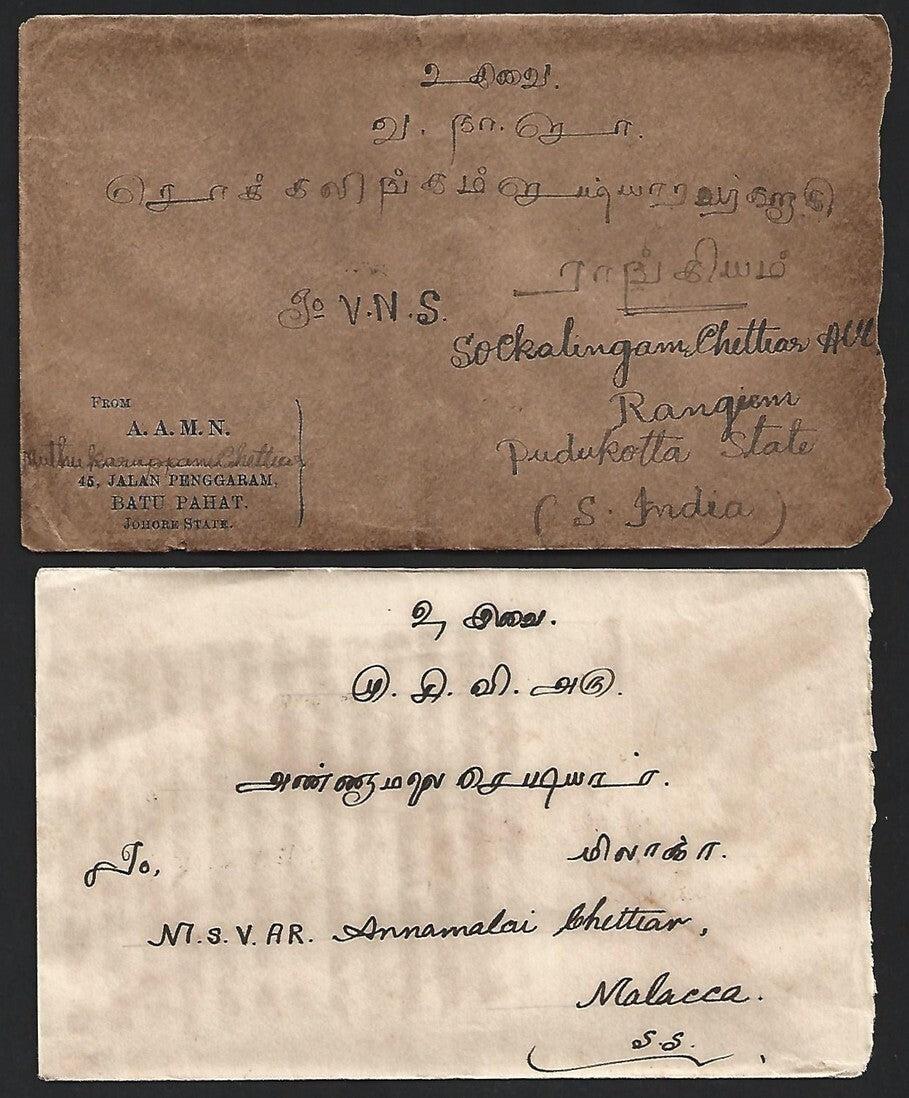 உ சிவை.
வ. நா. சொ.
சொக்கலிங்கம் செட்டியாரவர்களுக்கு
ராங்கியம்
To V.N.S.
Sockalingam Chettiar AVL
Rangiem
Pudukotta State
(S. India)
FROM
A. A. M. N.
Muthukaruppan Chettiar
45, JALAN PENGGARAM,
BATU PAHAT.
JOHORE STATE.
உ சிவை.
மு. சி. வி. அரு.
அண்ணாமலை செட்டியார்.
மிலாக்கா.
To,
M.S.V.AR. Annamalai Chettiar,
Malacca.
S.S.